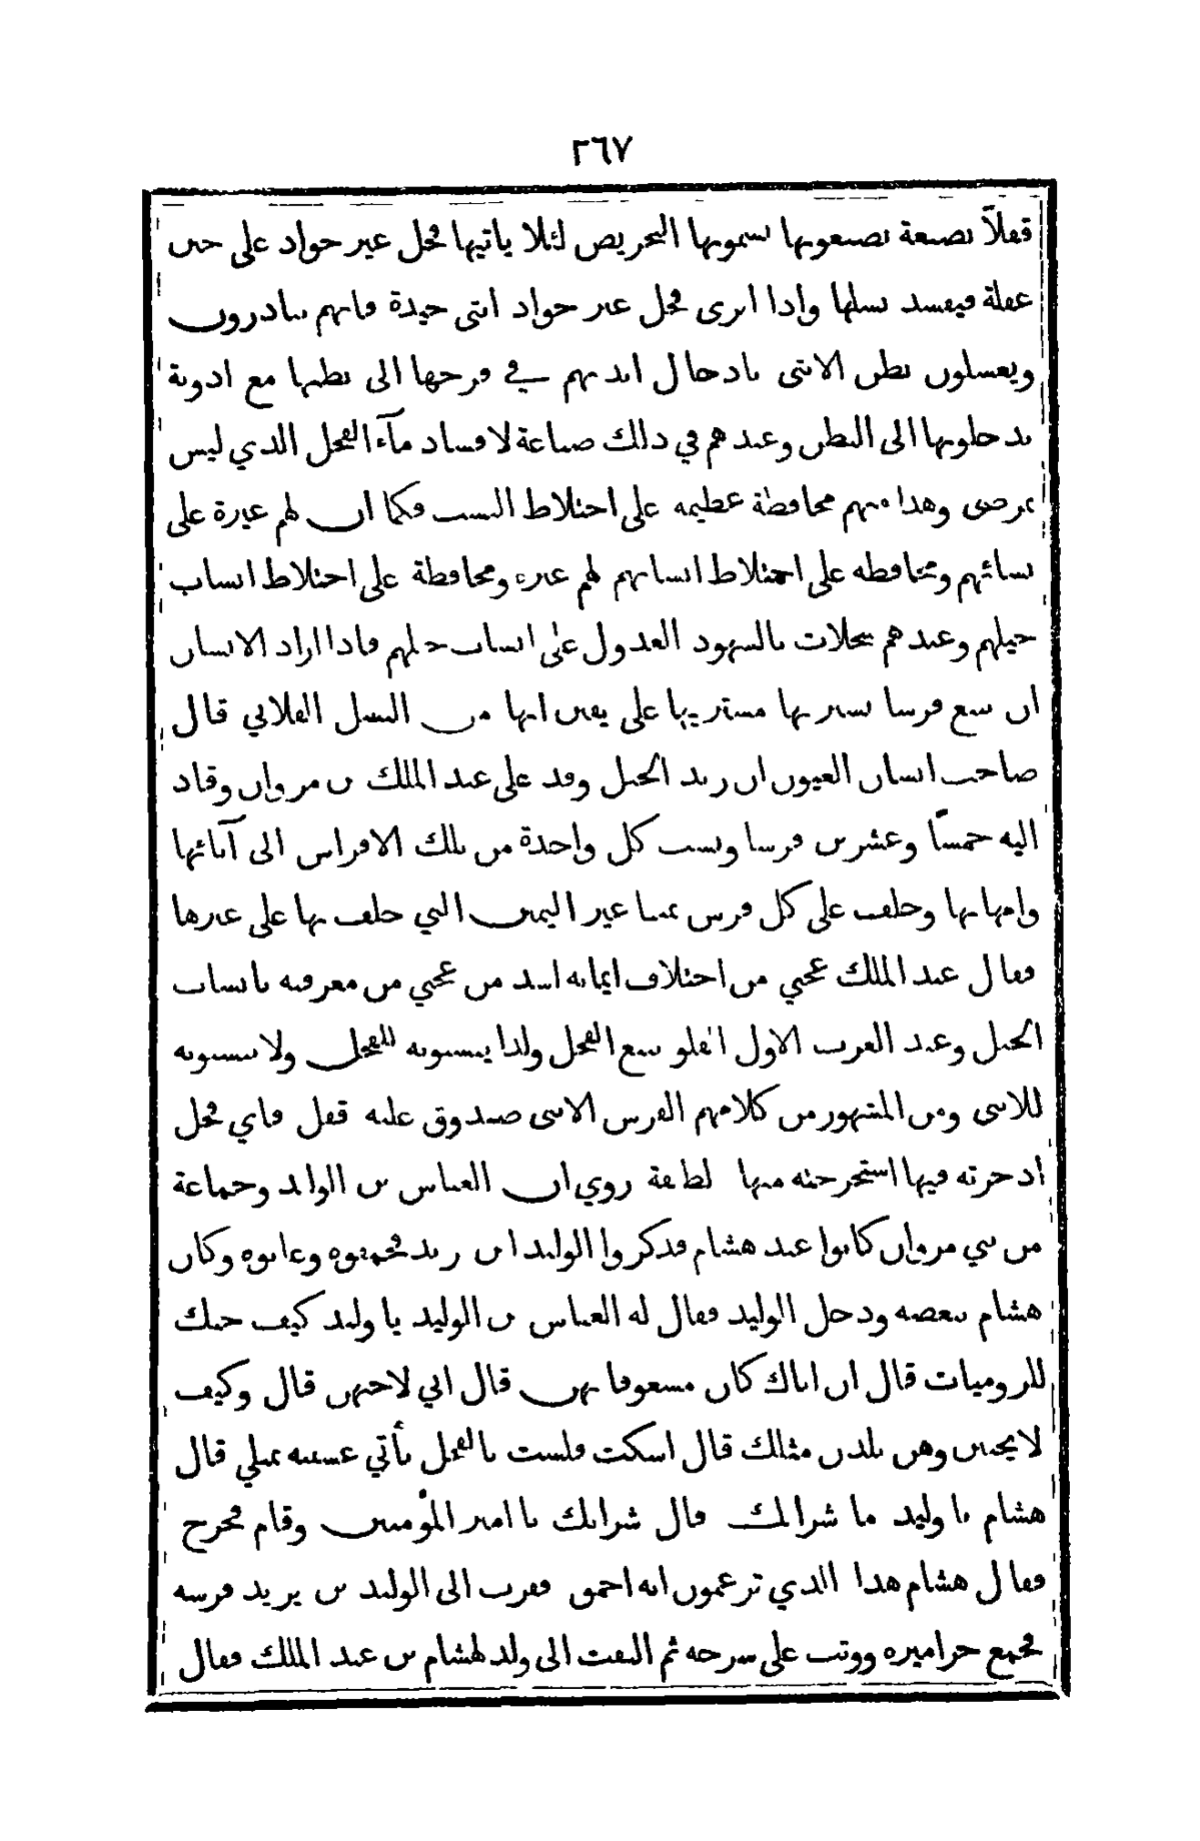 ٢٦٧
قفلاّ بصنعة يصنعونها يسمونها التحريص لئلا ياتيها فحل غير جواد على حين
غفلة فيفسد نسلها واذا انزى فحل غير جواد انثى جيدة فانهم يبادرون
ويغسلون بطن الانثى بادخال ايديهم في فرجها الى بطنها مع ادوية
يدخلونها الى البطن وعندهم في ذلك صناعة لافساد مآء الفحل الذي ليس
بمرضى وهذا منهم محافظة عظيمه على اختلاط النسب فكما ان لهم غيرة على
نسائهم ومحافظه على اختلاط انسابهم لهم غيره ومحافظة على اختلاط انساب
خيلهم وعندهم سجلات بالشهود العدول على انساب خيلهم فاذا اراد الانسان
ان يبيع فرسا يشتريها مشتريها على يقين انها من النسل الفلاني قال
صاحب انسان العيون ابن زيد الخيل وفد على عبد الملك بن مروان وقاد
اليه خمسًا وعشرين فرسا ونسب كل واحدة من تلك الافراس الى آبائها
وامهاتها وحلف على كل فرس يمينا غير اليمين التي حلف بها على غيرها
فقال عبد الملك عجبي من اختلاف ايمانه اشد من عجبي من معرفته بانساب
الخيل وعند العرب الاول الفلو يتبع الفحل ولذا ينسبونه للفحل ولا ينسبونه
للانثى ومن المشهور من كلامهم الفرس الانثى صندوق عليه قفل فاي فحل
ادخرته فيها استخرجته منها لطيفة روي ان العباس بن الوليد وجماعة
من بني مروان كانوا عند هشام فذكروا الوليد ابن يزيد فحمقوه وعابوه وكان
هشام يبغضه ودخل الوليد فقال له العباس بن الوليد يا وليد كيف حبك
للروميات قال ان اباك كان مشغوفا بهن قال اني لاحبهن قال وكيف
لا يحببن وهن يلدن مثلك قال اسكت فلست بالفحل يأتي عسيبه بمثلي قال
هشام يا وليد ما شرابك قال شرابك يا امير المؤمنين وقام فخرج
فقال هشام هذا الذي تزعمون انه احمق فقرب الى الوليد بن يزيد فرسه
فجمع جراميزه ووثب على سرجه ثم التفت الى ولد لهشام بن عبد الملك فقال